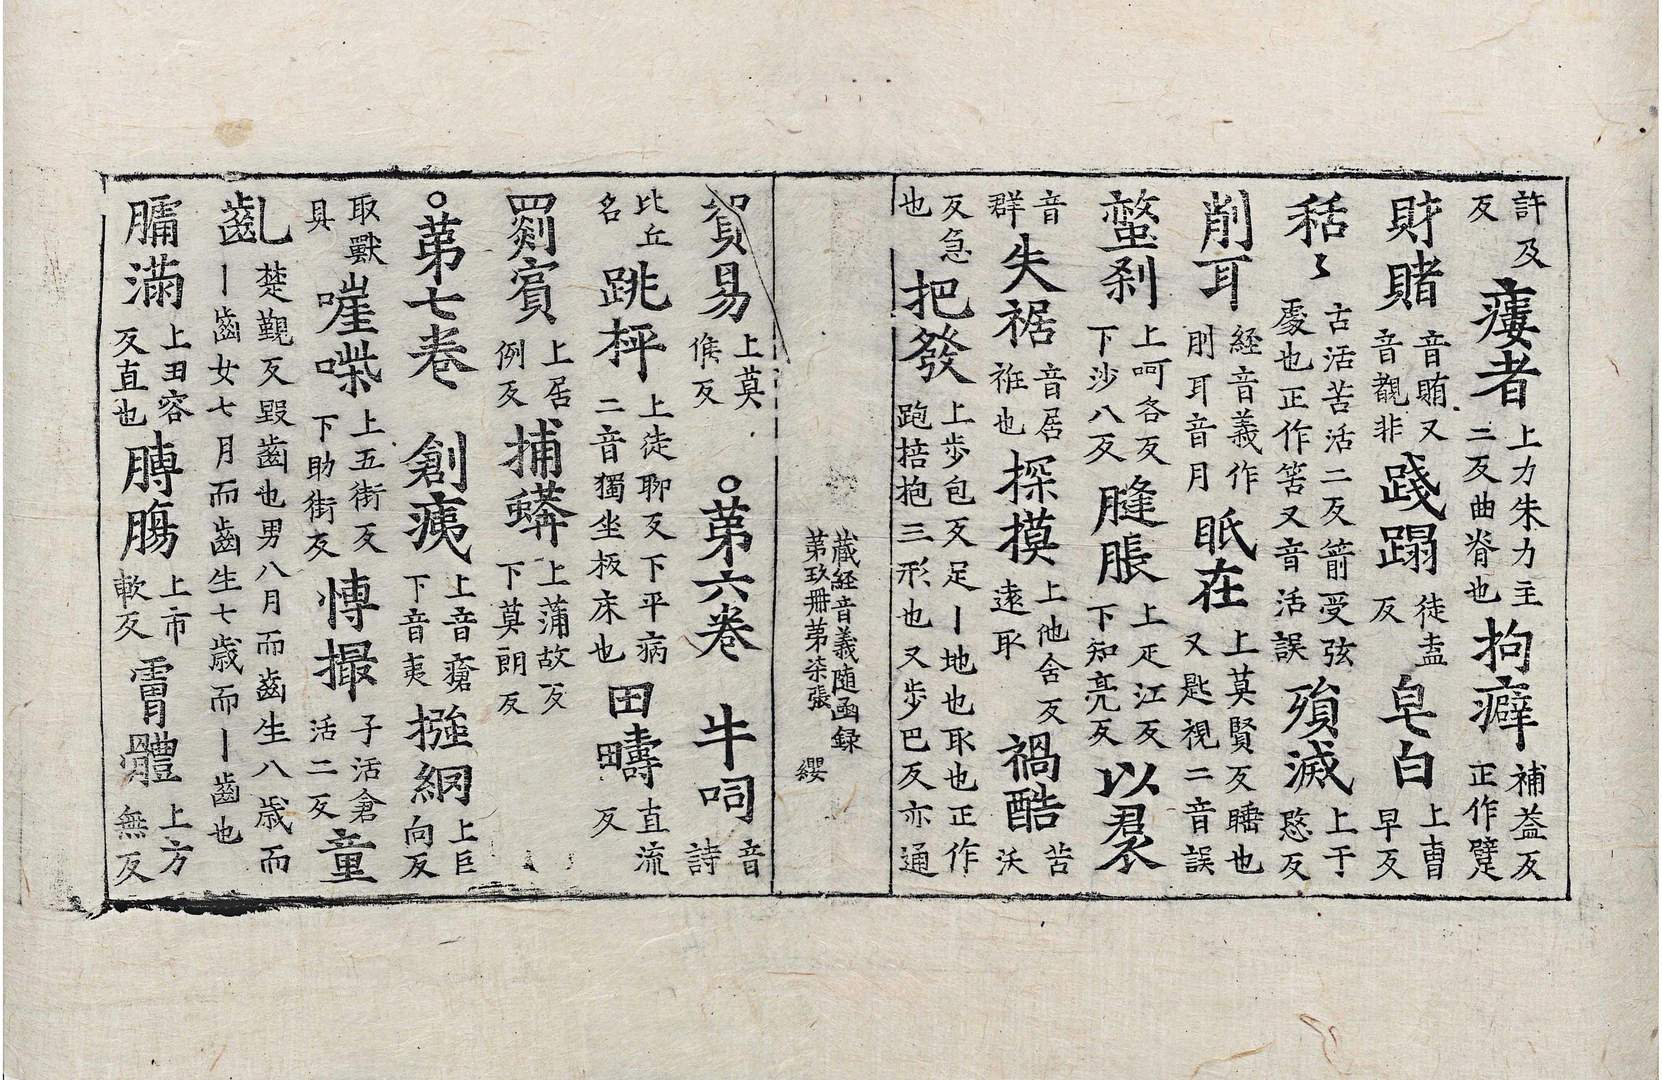 許及反瘻者上力朱力主二反曲脊也拘癖補益反正作躄
財賭音賄又音覩非踐蹋徒盍反皂白上曺早反
秳〻古活苦活二反箭受弦處也正作筈又音活誤殞滅上于愍反
削耳經音義作刖耳音月眂在上莫賢反睡也又匙視二音誤
螫刹上呵各反下沙八反膖脹上疋江反下知亮反以裠
音群失裾音居袵也探摸上他含反遠取禍酷苦沃
反急也把發上步包反足丨地也取也正作跑掊抱三形也又步巴反亦通
藏經音義随函録
第玖册第柒張 纓
貿易上莫候反 ○第六卷 牛呞音詩
比丘名跳枰上徒聊反下平病二音獨坐板床也田疇直流反
罽賓上居例反捕蟒上蒲故反下莫朗反
○第七卷 創痍上音瘡下音夷摾網上巨向反
取獸具嘊喍上五街反下助街反慱撮子活倉活二反童
齓楚覲反毀齒也男八月而齒生八歳而丨齒女七月而齒生七歳而丨齒也
𦟛滿上田容反直也膞膓上市軟反膏體上方無反